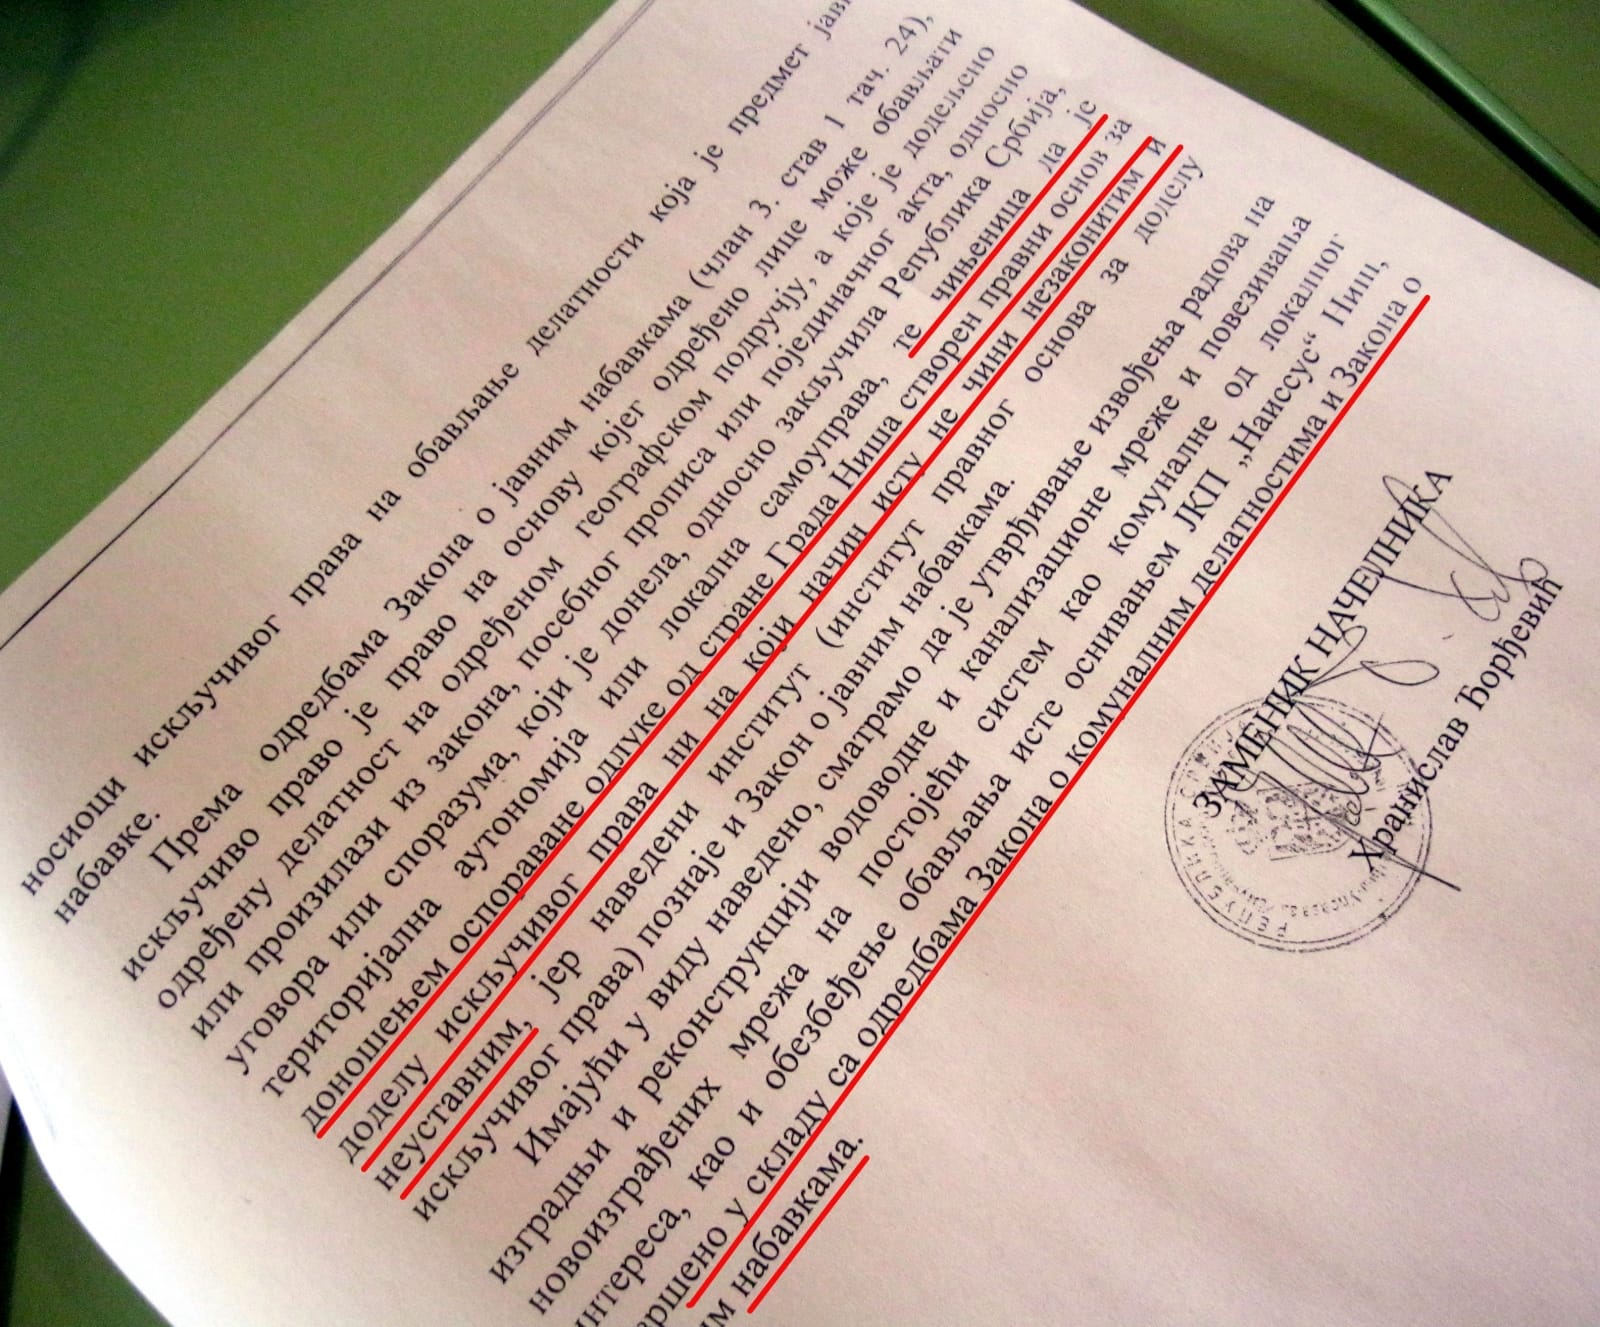 носиоци искључивог права на обављање делатности која је предмет
набавке.
Према одредбама Закона о јавним набавкама (члан 3. став 1 тач. 24),
искључиво право је право на основу којег одређено лице може обављати
одређену делатност на одређеном географском подручју, а које је додељено
или произилази из закона, посебног прописа или појединачног акта, односно
уговора или споразума, који је донела, односно закључила Република Србија,
територијална аутономија или локална самоуправа, те чињеница да је
доношењем оспораване одлуке од стране Града Ниша створен правни основ за
доделу искључивог права ни на који начин исту не чини незаконитим и
неуставним, јер наведени институт (институт правног основа за доделу
искључивог права) познаје и Закон о јавним набавкама.
Имајући у виду наведено, сматрамо да је утврђивање извођења радова на
изградњи и реконструкцији водоводне и канализационе мреже и повезивања
новоизграђених мрежа на постојећи систем као комуналне од локалног
интереса, као и обезбеђење обављања исте оснивањем ЈКП „Наиссус“ Ниш,
у складу са одредбама Закона о комуналним делатностима и Закона о
набавкама.
ЗАМЕНИК НАЧЕЛНИКА
Хранислав Ђорђевић